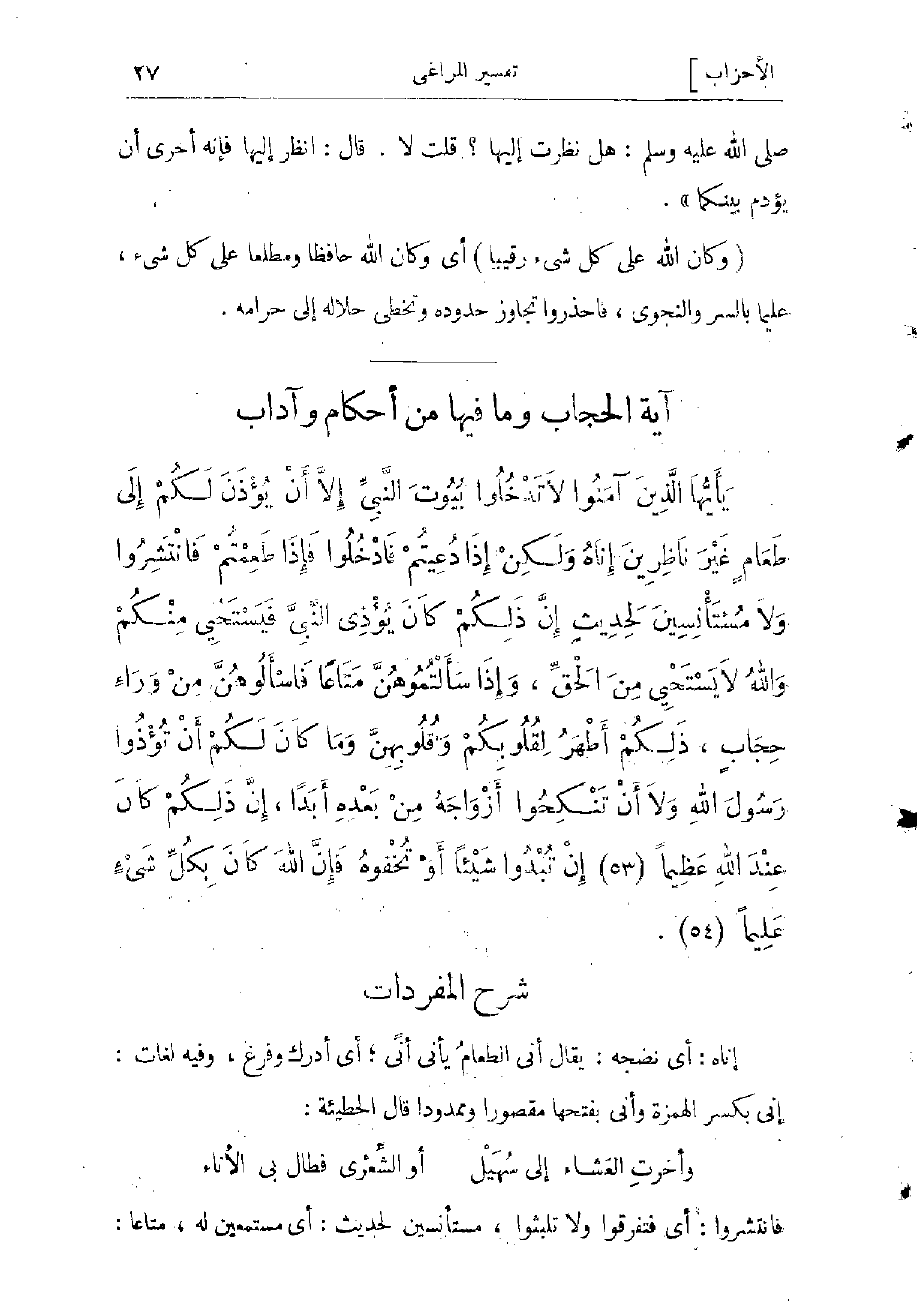 الأحزاب] تفسير المراغى ٢٧
صلى الله عليه وسلم : هل نظرت إليها ؟ قلت لا . قال : انظر إليها فإنه أحرى أن
يؤدم بينكما » .
( وكان الله على كل شىء رقيبا ) أى وكان الله حافظا ومطلعا على كل شىء ،
عليما بالسر والنجوى ، فاحذروا تجاوز حدوده وتخطى حلاله إلى حرامه .
آية الحجاب وما فيها من أحكام وآداب
يَأَيُّهَا الَّذِينَ آمَنُوا لاَ تَدْخُلُوا بُيُوتَ النَّبِىِّ إِلاَّ أَنْ يُؤْذَنَ لَكُمْ إِلَى
طَعَامٍ غَيْرَ نَاظِرِينَ إِنَاهُ وَلَكِنْ إِذَا دُعِيتُمْ فَادْخُلُوا فَإِذَا طَعِمْتُمْ فَانْتَشِرُوا
وَلاَ مُسْتَأْنِسِينَ لِحَدِيثٍ إِنَّ ذَلِكُمْ كَانَ يُؤْذِى النَّبِىَّ فَيَسْتَحْيِى مِنْكُمْ
وَاللهُ لاَ يَسْتَحْيِى مِنَ الْحَقِّ ، وَإِذَا سَأَلْتُمُوهُنَّ مَتَاعًا فَاسْأَلُوهُنَّ مِنْ وَرَاءِ
حِجَابٍ ، ذَلِكُمْ أَطْهَرُ لِقُلُوبِكُمْ وَقُلُوبِهِنَّ وَمَا كَانَ لَكُمْ أَنْ تُؤْذُوا
رَسُولَ اللهِ وَلاَ أَنْ تَنْكِحُوا أَزْوَاجَهُ مِنْ بَعْدِهِ أَبَدًا ، إِنَّ ذَلِكُمْ كَانَ
عِنْدَ اللهِ عَظِيماً (٥٣) إِنْ تُبْدُوا شَيْئاً أَوْ تُخْفُوهُ فَإِنَّ اللهَ كَانَ بِكُلِّ شَىْءٍ
عَلِيماً (٥٤) .
شرح المفردات
إناه : أى نضجه : يقال أنى الطعامُ يأنى أنًى ؛ أى أدرك وفرغ ، وفيه لغات :
إنى بكسر الهمزة وأنى بفتحها مقصورا وممدودا قال الحطيئة :
وأخرتِ العَشاء إلى سُهَيْل أو الشِّعْرَى فطال بى الأناء
فانتشروا : أى فتفرقوا ولا تلبثوا ، مستأنسين لحديث : أى مستمعين له ، متاعا :